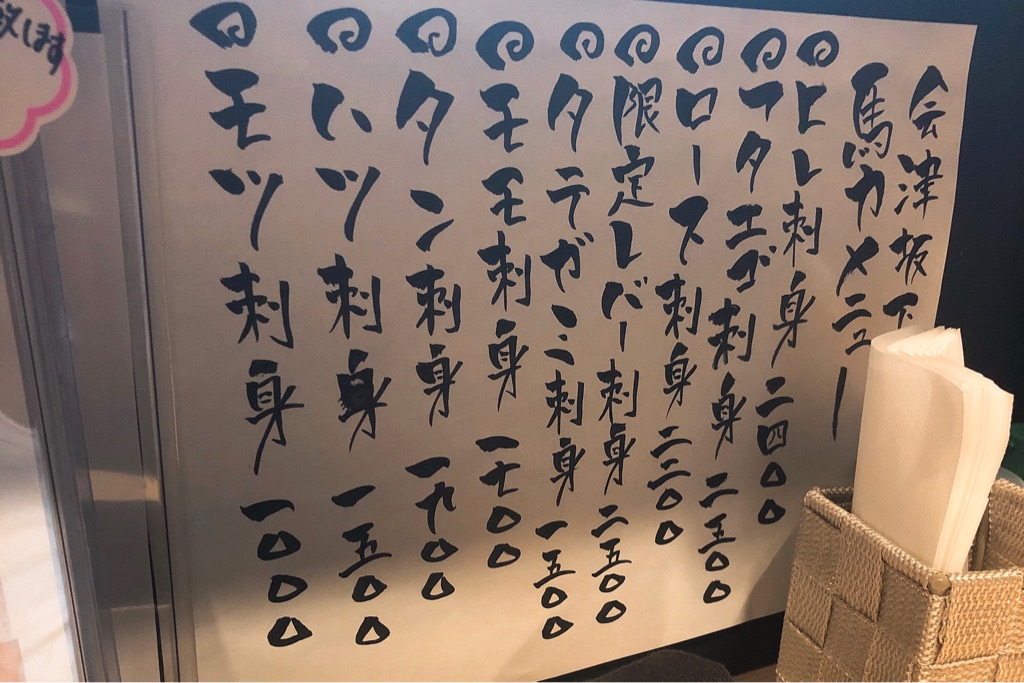 会津坂下
馬力メニュー
◎ヒレ刺身 二四〇〇
◎フタエゴ刺身 二五〇〇
◎ロース刺身 二三〇〇
◎限定レバー刺身 二五〇〇
◎タテガミ刺身 一五〇〇
◎モモ刺身 一七〇〇
◎タン刺身 一九〇〇
◎ハツ刺身 一五〇〇
◎モツ刺身 一〇〇〇
致します